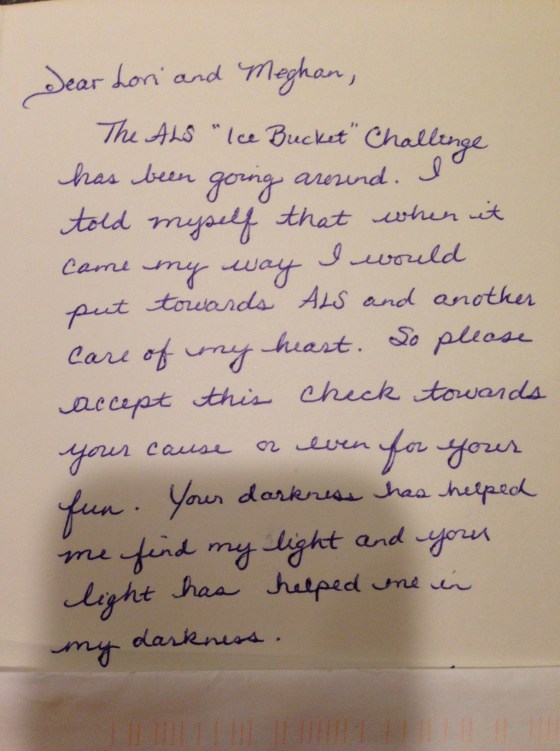 Dear Lori and Meghan,
The ALS "Ice Bucket" Challenge
has been going around. I
told myself that when it
came my way I would
put towards ALS and another
care of my heart. So please
accept this check towards
your cause or even for your
fun. Your darkness has helped
me find my light and your
light has helped me in
my darkness.